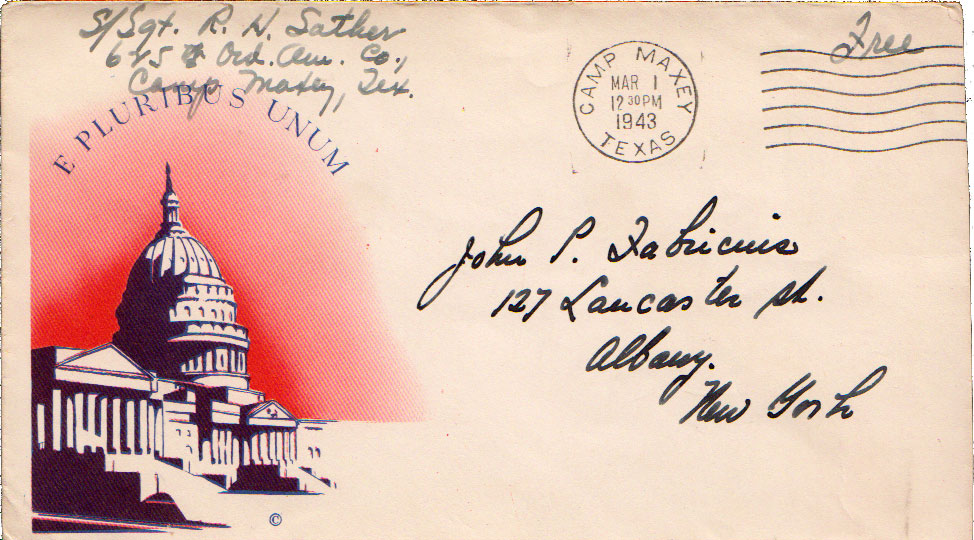 S/Sgt. R. H. Sather
625th Ord. Am. Co.,
Camp Maxey, Tex.
Free
E PLURIBUS UNUM
CAMP MAXEY
MAR 1
12 30 PM
1943
TEXAS
John P. Fabricius
127 Lancaster St.
Albany.
New York
©